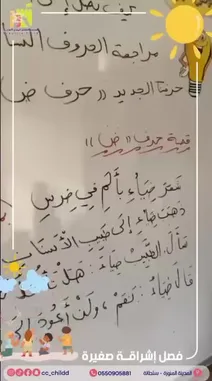 مراجعة الحروف
حرفنا الجديد (( حرف ض
قصة حرف (( ض ))
شَعَرَ ضِيَاءُ بِأَلَمٍ فِي ضِرْسِ
ذَهَبَ ضِيَاءُ إِلَى طَبِيبِ الْأَسْنَانِ
سَأَلَ الطَّبِيبُ ضِيَاءَ : هَلْ
قَالَ ضِيَاءُ : نَعَمْ ، وَلَنْ أَعُودَ إِلَى
فصل إشراقـة صغيرة
cc_childd
0550905881
المدينة المنورة - سلطانة